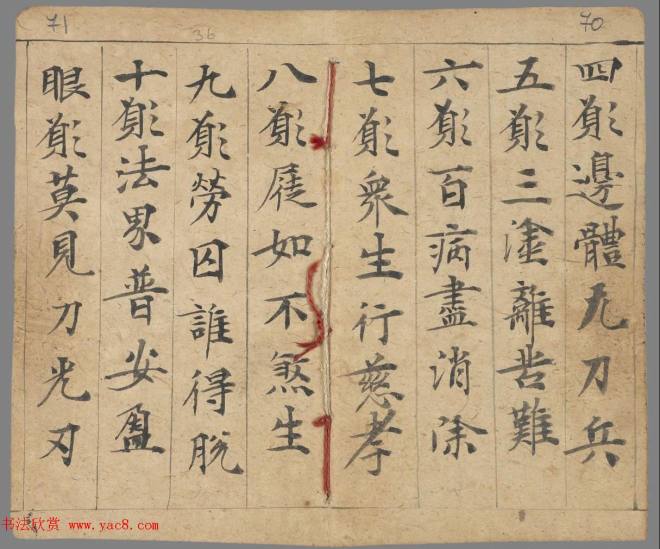 70
四願邊體无刀兵
五願三塗離苦難
六願百病盡消除
七願衆生行慈孝
八願屣如不煞生
九願勞囚誰得脫
十願法界普安盈
眼願莫見刀光刃
71
36
书法欣赏 www.yac8.com